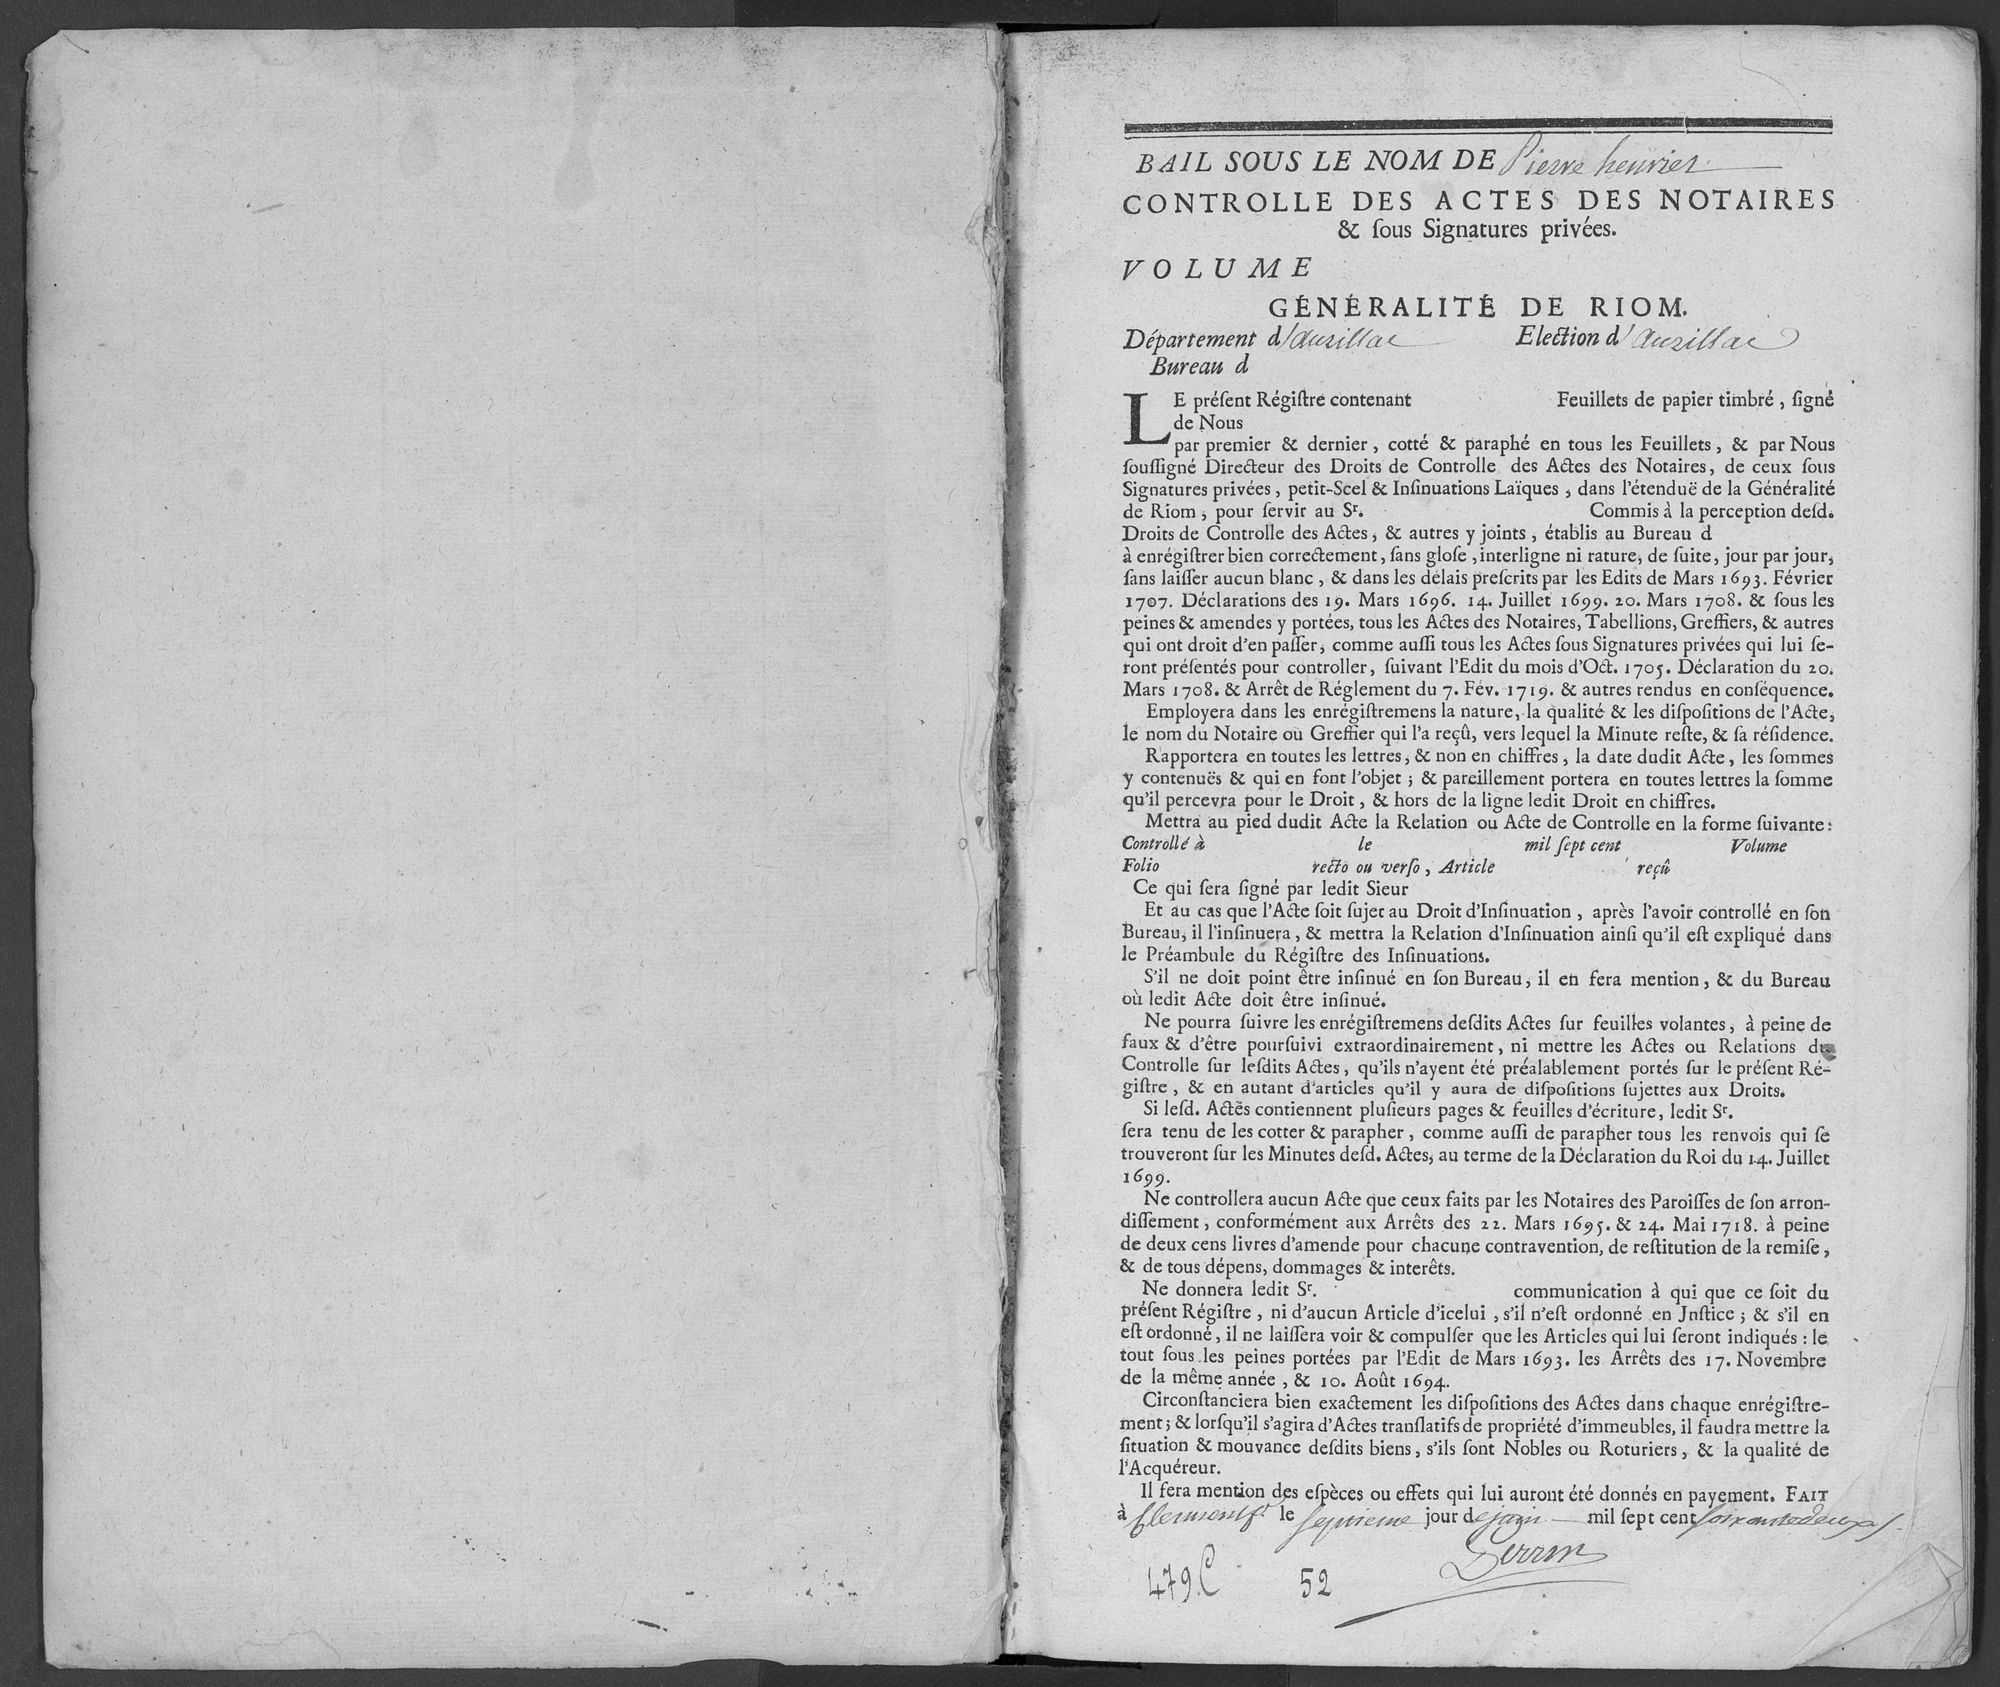 BAIL SOUS LE NOM DE Pierre henriet
CONTROLLE DES ACTES DES NOTAIRES
& ſous Signatures privées.
VOLUME
GÉNÉRALITÉ DE RIOM.
Département d'aurillac Election d'aurillac
Bureau d
LE préſent Régiſtre contenant Feuillets de papier timbré, ſigné
de Nous
par premier & dernier, cotté & paraphé en tous les Feuillets, & par Nous
ſouſſigné Directeur des Droits de Controlle des Actes des Notaires, de ceux ſous
Signatures privées, petit-Scel & Inſinuations Laïques, dans l'étenduë de la Généralité
de Riom, pour ſervir au Sr. Commis à la perception deſd.
Droits de Controlle des Actes, & autres y joints, établis au Bureau d
à enrégiſtrer bien correctement, ſans gloſe, interligne ni rature, de ſuite, jour par jour,
ſans laiſſer aucun blanc, & dans les délais preſcrits par les Edits de Mars 1693. Février
1707. Déclarations des 19. Mars 1696. 14. Juillet 1699. 20. Mars 1708. & ſous les
peines & amendes y portées, tous les Actes des Notaires, Tabellions, Greffiers, & autres
qui ont droit d'en paſſer, comme auſſi tous les Actes ſous Signatures privées qui lui ſe-
ront préſentés pour controller, ſuivant l'Edit du mois d'Oct. 1705. Déclaration du 20.
Mars 1708. & Arrêt de Réglement du 7. Fév. 1719. & autres rendus en conſéquence.
Employera dans les enrégiſtremens la nature, la qualité & les diſpoſitions de l'Acte,
le nom du Notaire ou Greffier qui l'a reçû, vers lequel la Minute reſte, & ſa réſidence.
Rapportera en toutes les lettres, & non en chiffres, la date dudit Acte, les ſommes
y contenuës & qui en font l'objet; & pareillement portera en toutes lettres la ſomme
qu'il percevra pour le Droit, & hors de la ligne ledit Droit en chiffres.
Mettra au pied dudit Acte la Relation ou Acte de Controlle en la forme ſuivante:
Controllé à le mil ſept cent Volume
Folio recto ou verſo, Article reçû
Ce qui ſera ſigné par ledit Sieur
Et au cas que l'Acte ſoit ſujet au Droit d'Inſinuation, après l'avoir controllé en ſon
Bureau, il l'inſinuera, & mettra la Relation d'Inſinuation ainſi qu'il eſt expliqué dans
le Préambule du Régiſtre des Inſinuations.
S'il ne doit point être inſinué en ſon Bureau, il en fera mention, & du Bureau
où ledit Acte doit être inſinué.
Ne pourra ſuivre les enrégiſtremens deſdits Actes ſur feuilles volantes, à peine de
faux & d'être pourſuivi extraordinairement, ni mettre les Actes ou Relations du
Controlle ſur leſdits Actes, qu'ils n'ayent été préalablement portés ſur le préſent Ré-
giſtre, & en autant d'articles qu'il y aura de diſpoſitions ſujettes aux Droits.
Si leſd. Actes contiennent pluſieurs pages & feuilles d'écriture, ledit Sr.
ſera tenu de les cotter & parapher, comme auſſi de parapher tous les renvois qui ſe
trouveront ſur les Minutes deſd. Actes, au terme de la Déclaration du Roi du 14. Juillet
1699.
Ne controllera aucun Acte que ceux faits par les Notaires des Paroiſſes de ſon arron-
diſſement, conformément aux Arrêts des 22. Mars 1695. & 24. Mai 1718. à peine
de deux cens livres d'amende pour chacune contravention, de reſtitution de la remiſe,
& de tous dépens, dommages & interêts.
Ne donnera ledit Sr. communication à qui que ce ſoit du
préſent Régiſtre, ni d'aucun Article d'icelui, s'il n'eſt ordonné en Jnſtice; & s'il en
eſt ordonné, il ne laiſſera voir & compulſer que les Articles qui lui ſeront indiqués: le
tout ſous les peines portées par l'Edit de Mars 1693. les Arrêts des 17. Novembre
de la même année, & 10. Août 1694.
Circonſtanciera bien exactement les diſpoſitions des Actes dans chaque enrégiſtre-
ment; & lorſqu'il s'agira d'Actes tranſlatifs de propriété d'immeubles, il faudra mettre la
ſituation & mouvance deſdits biens, s'ils ſont Nobles ou Roturiers, & la qualité de
l'Acquéreur.
Il fera mention des eſpèces ou effets qui lui auront été donnés en payement. FAIT
à Clermont fd. le septieme jour de juin mil ſept cent soixante deux
Perrin
479.C 52